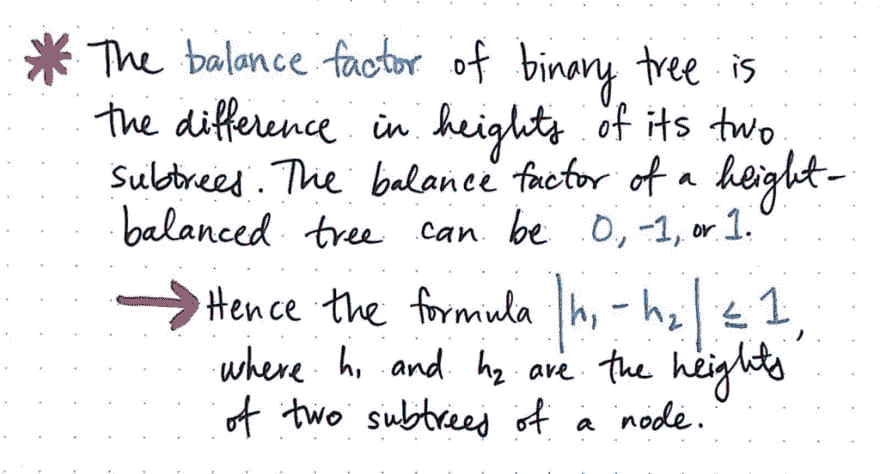 * The balance factor of binary tree is
the difference in heights of its two
subtrees. The balance factor of a height-
balanced tree can be 0, -1, or 1.
→ Hence the formula |h₁ - h₂| ≤ 1,
where h₁ and h₂ are the heights
of two subtrees of a node.